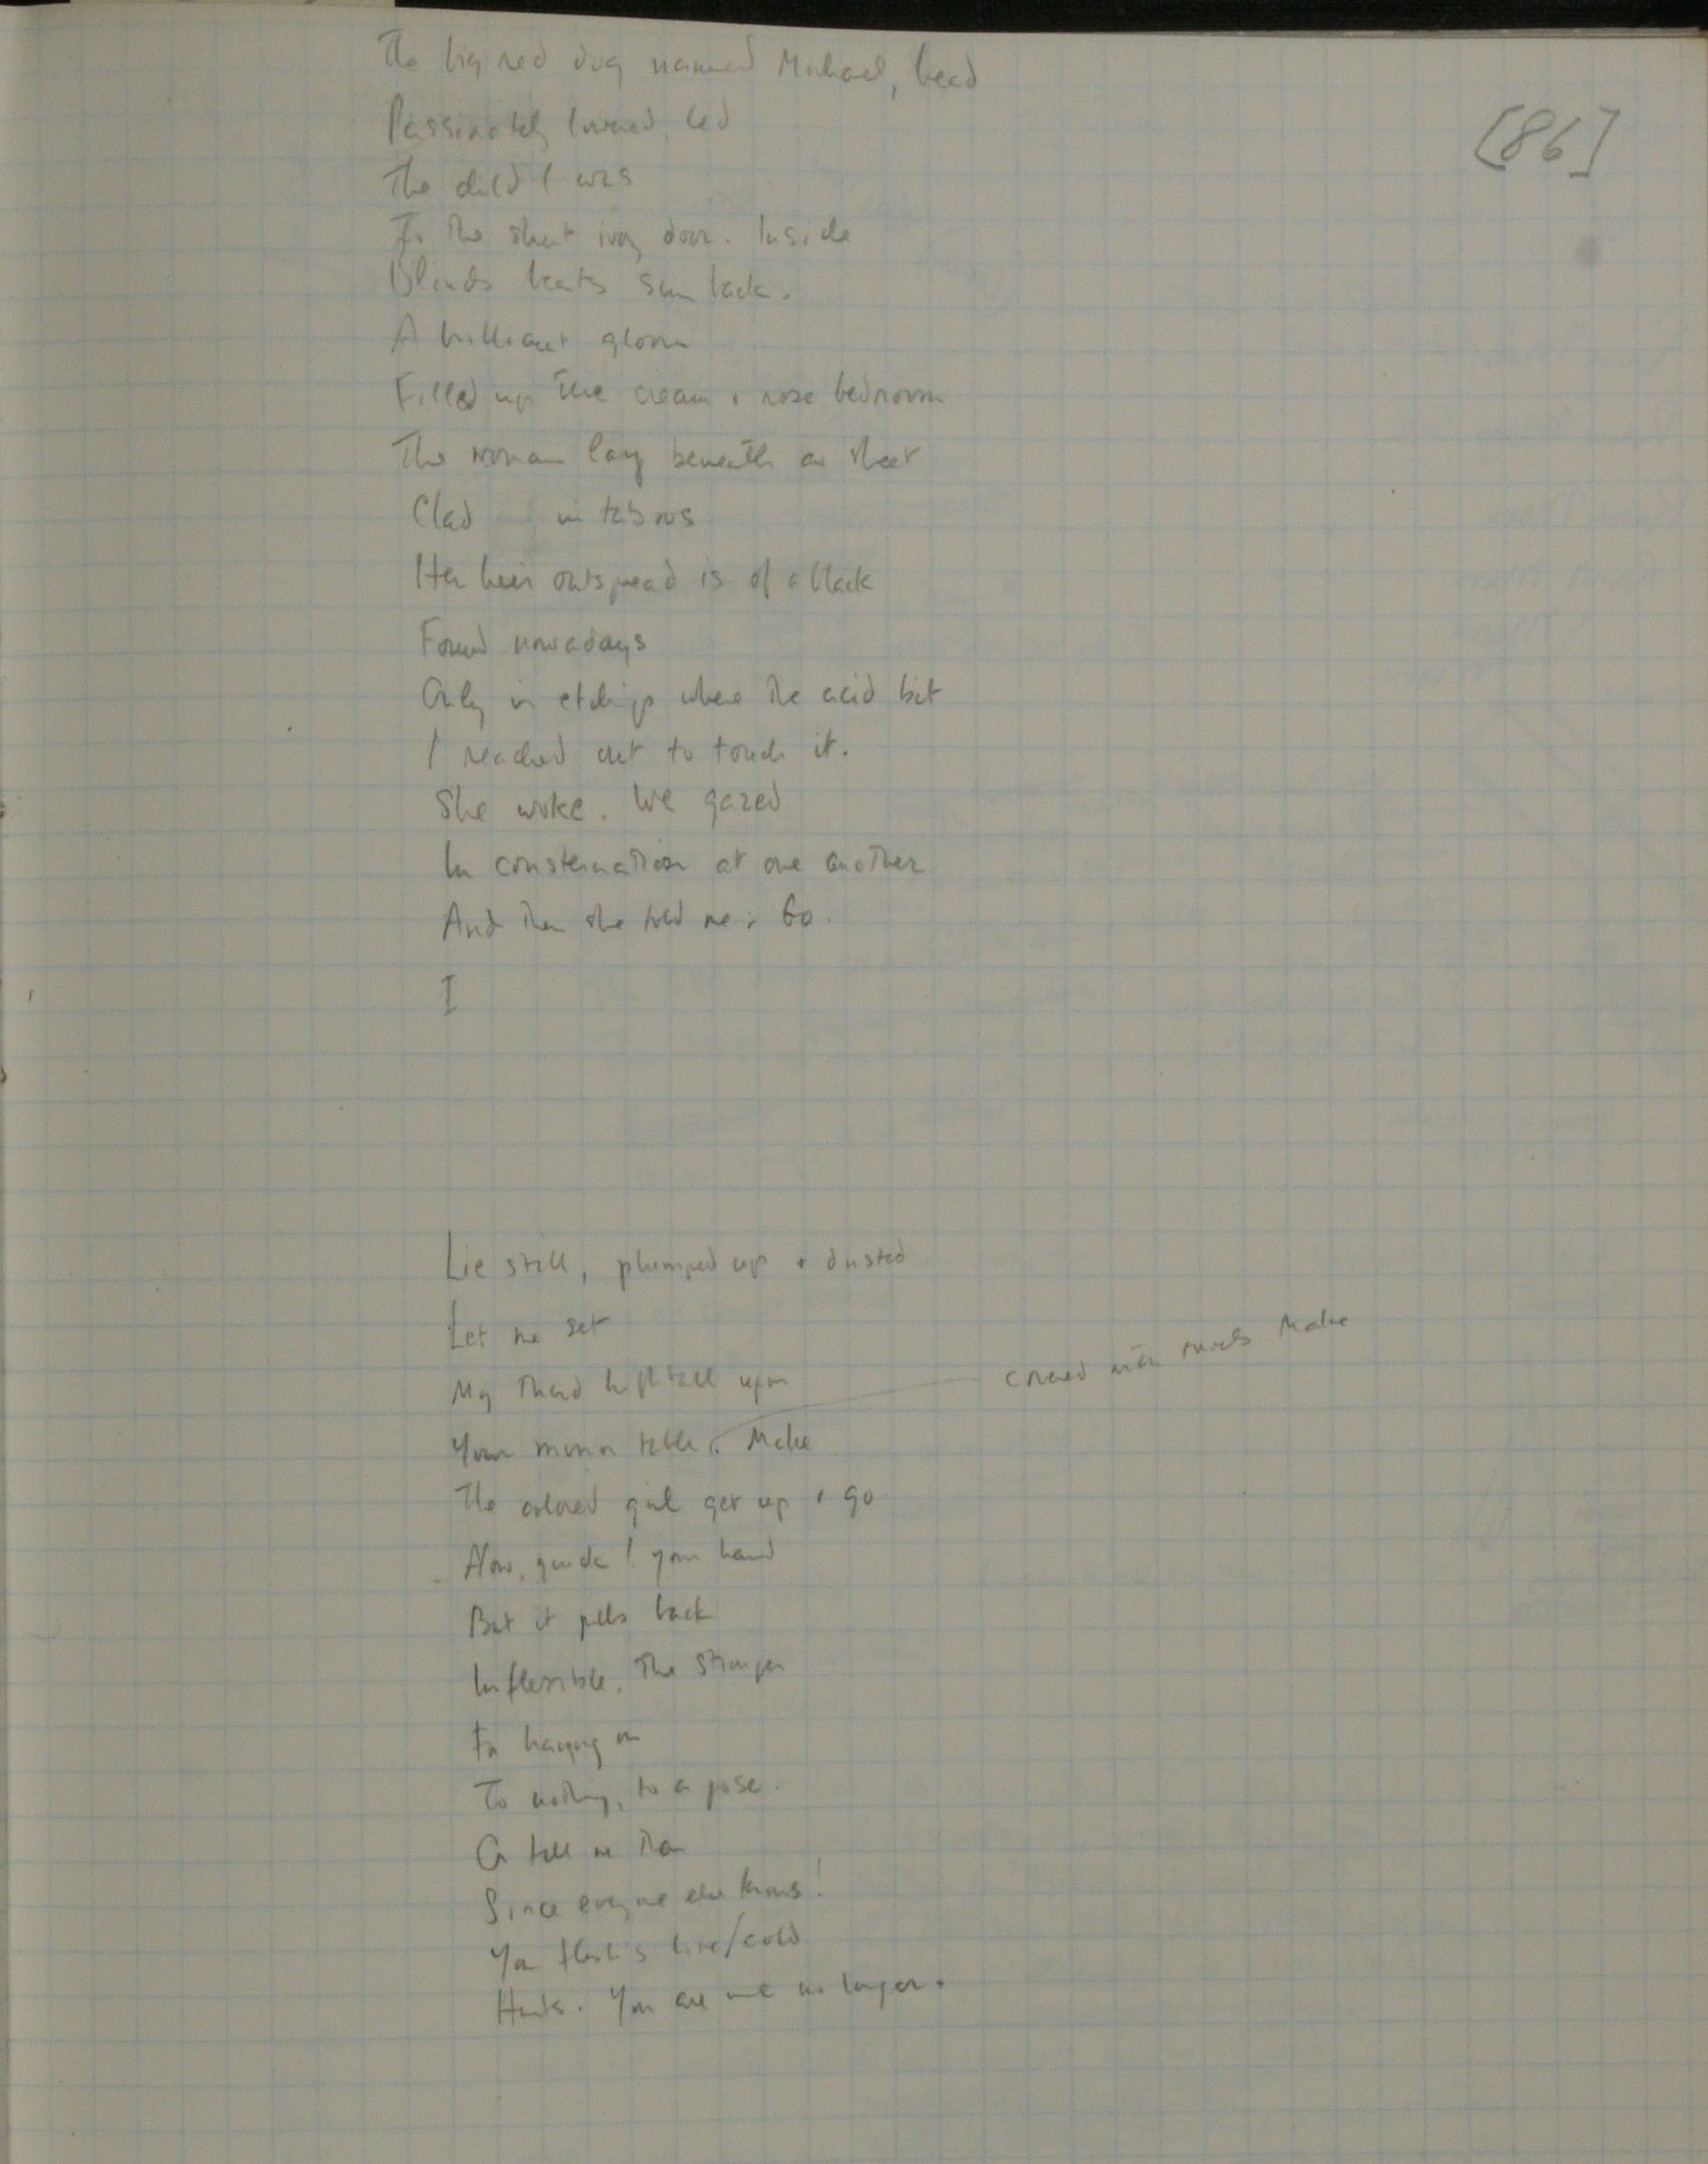 The big red dog named Michael, head
[86]
Passionately lowered, led
The child I was
To the shut ivory door. Inside
Blinds beats sun back.
A brilliant gloom
Filled up the cream & rose bedroom
The woman lay beneath a sheet
Clad in
Her hair outspread is of a black
Found nowadays
Only in etchings where the acid bit
I reached out to touch it.
She woke. We gazed
In consternation at one another
And then she told me: Go.
I
Lie still, plumped up & dusted
Let me set
My Third upon
Your mirror table. Make
covered with Make
The colored girl get up & go
Now, quick! your hand
But it pulls back
Inflexible, The stronger
For hanging on
To nothing, to a pose.
Or tell me then
Since everyone else knows!
Your flesh is like/cold
Hands. You are me no longer.